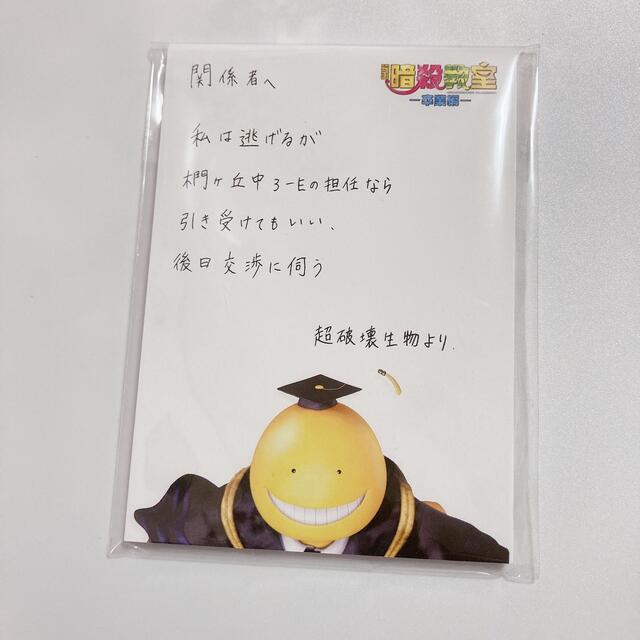 関係者へ
暗殺教室
ー卒業編ー
私は逃げるが
椚ヶ丘中3-Eの担任なら
引き受けてもいい、
後日交渉に伺う
超破壊生物より.